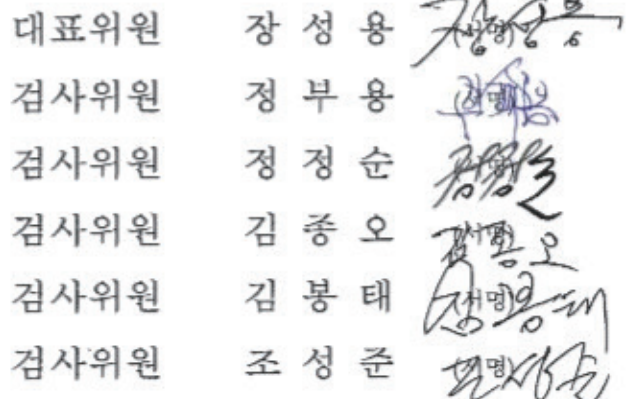 대표위원 장 성 용 (서명)
검사위원 정 부 용 (서명)
검사위원 정 정 순
검사위원 김 종 오 (서명)
검사위원 김 봉 태 (서명)
검사위원 조 성 준 (서명)